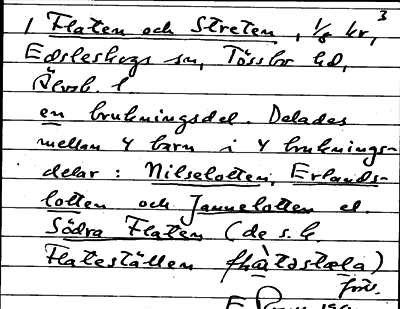 1 Flaten och Streten, 1/8 kr, 3
Edsleskogs sn, Tössbo hd,
Älvsb. l
en brukningsdel. Delades
mellan 4 barn i 4 bruknings-
delar: Nilselotten, Erlands-
lotten och Jannelotten el.
Södra Flaten (de s.k.
Flateställen
förv.